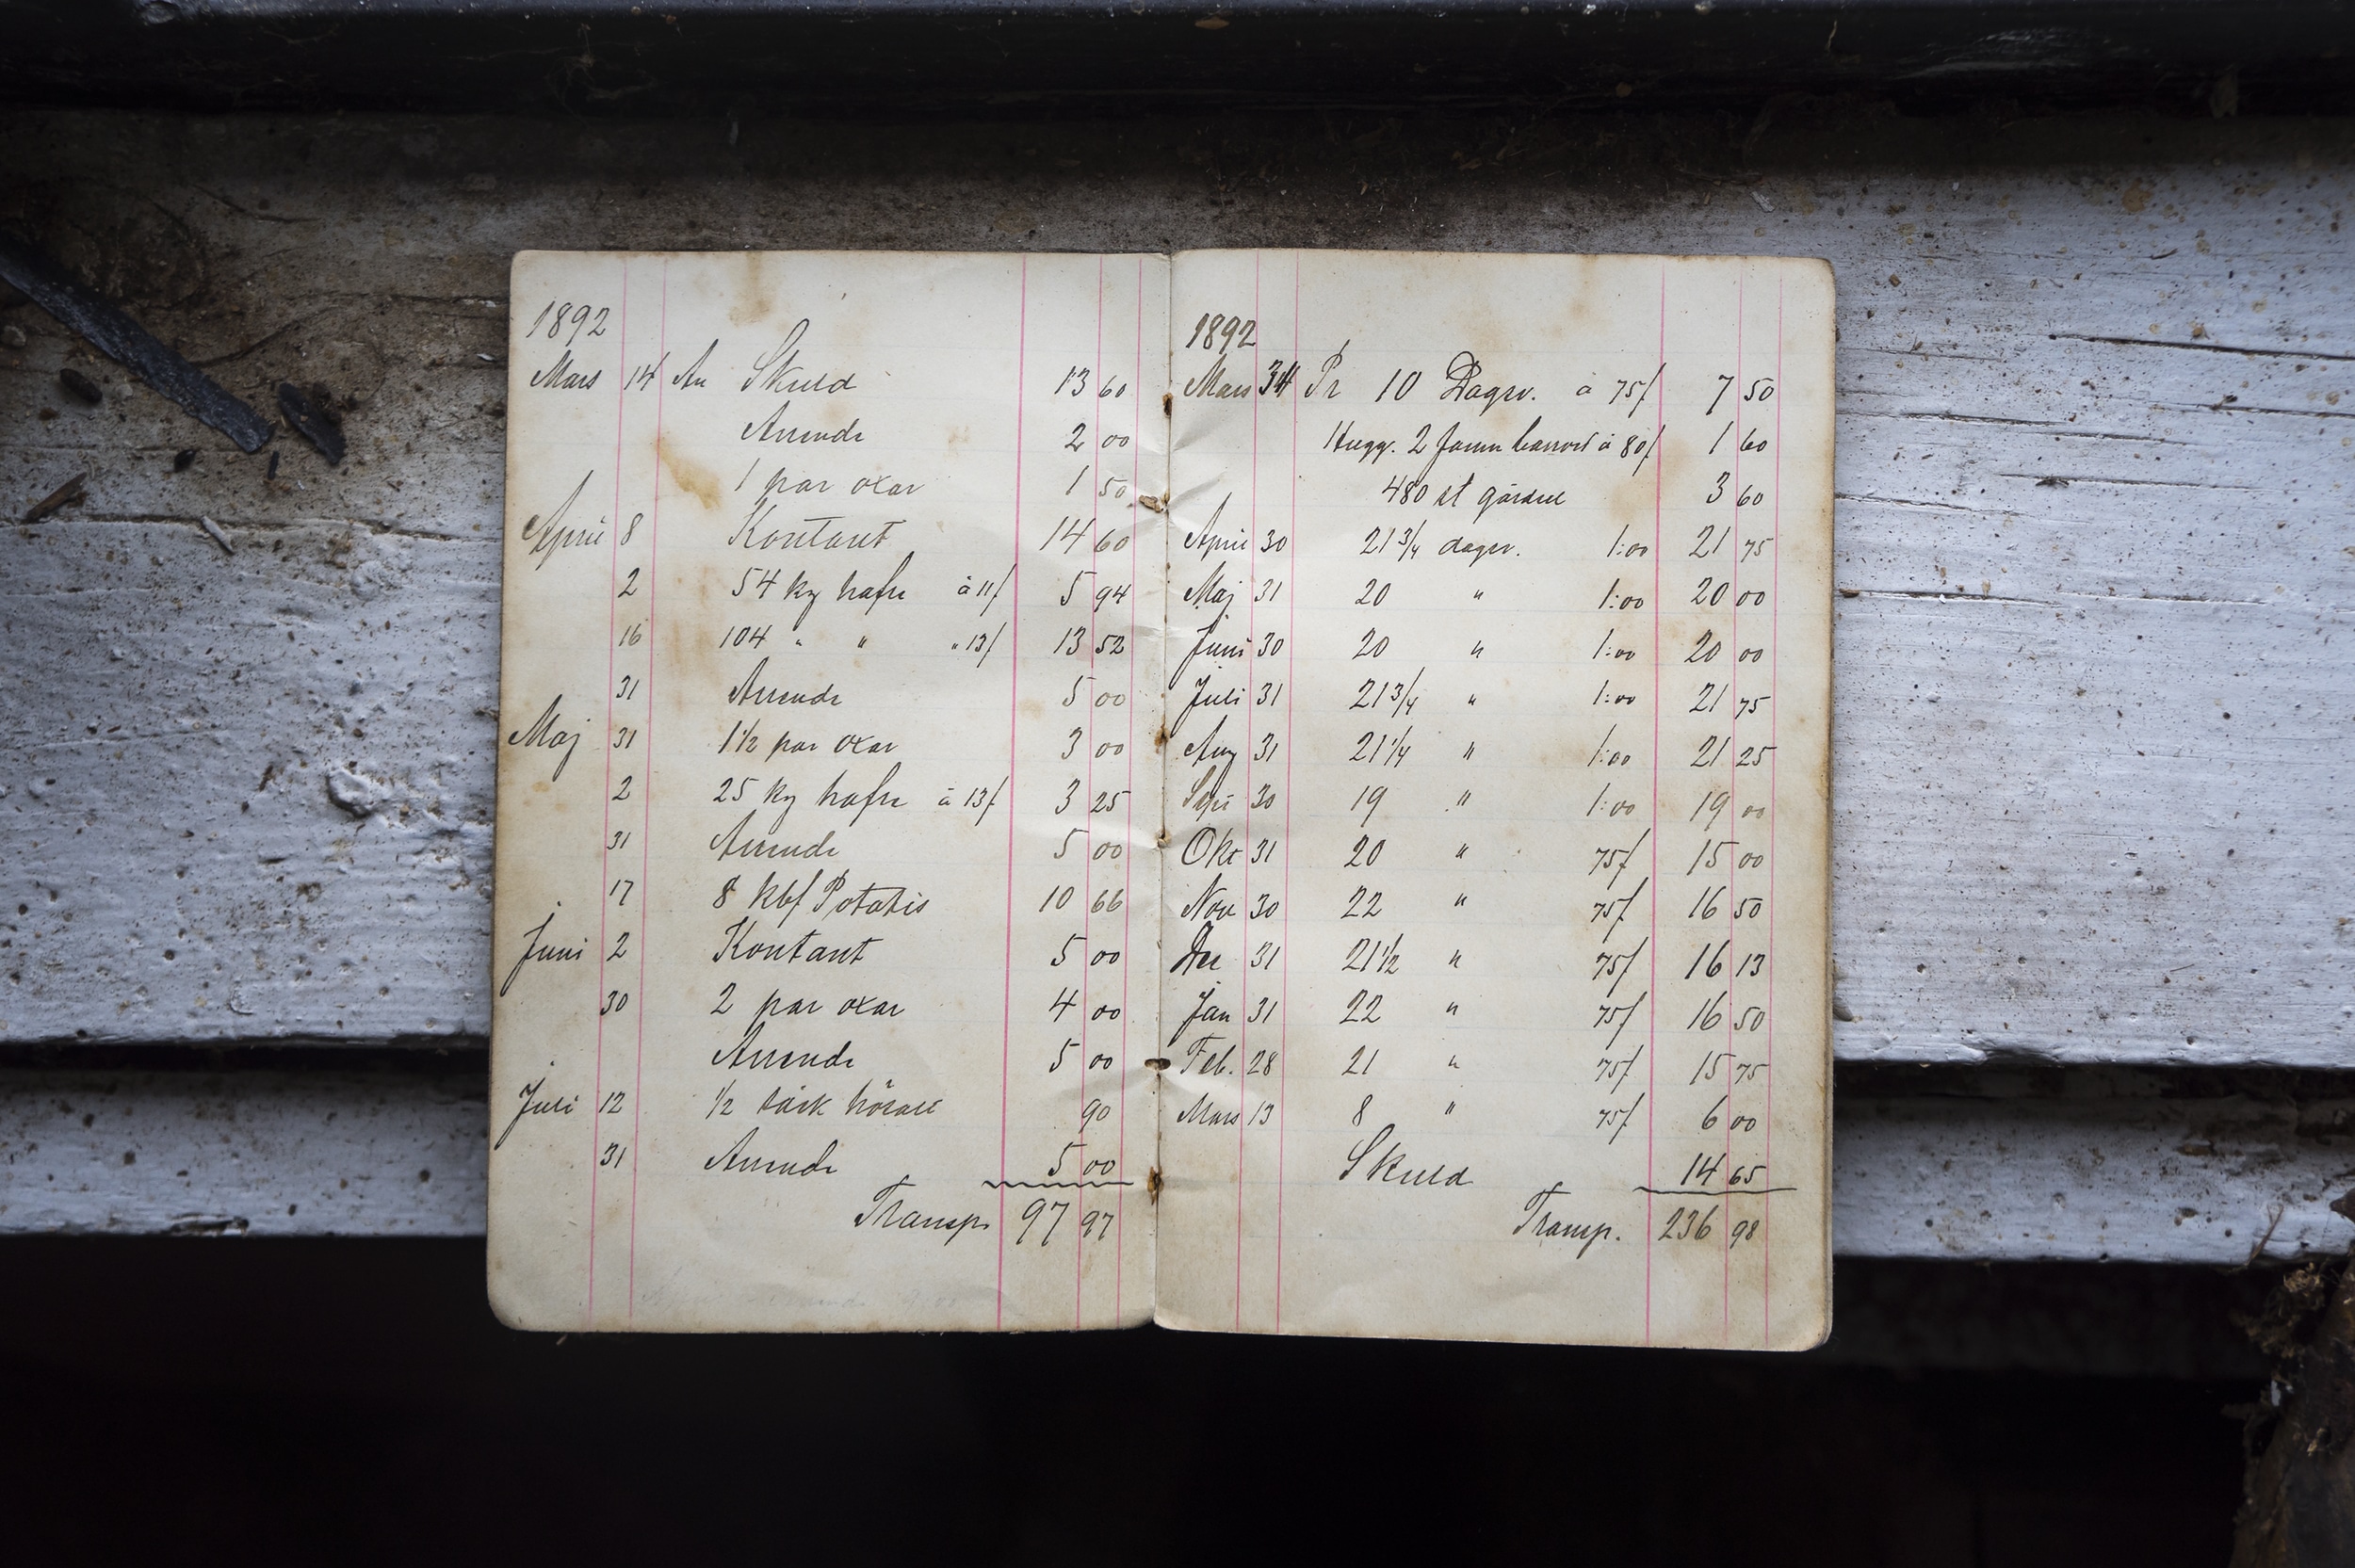 1892
Mars 14 An Skuld 13 60
Arrende 2 00
1 par oxar 1 50
April 8 Kontant 14 60
2 54 kg hafre à 11/ 5 94
16 104 " " " 13/ 13 52
31 Arrende 5 00
Maj 31 1 1/2 par oxar 3 00
2 25 kg hafre à 13/ 3 25
31 Arrende 5 00
17 8 kbf Potatis 10 66
Juni 2 Kontant 5 00
30 2 par oxar 4 00
Arrende 5 00
Juli 12 1/2 90
31 Arrende 5 00
Transp. 97 97
1892
Mars Pr 10 Dagsv. à 75/ 7 50
Hugg. 2 famn à 80/ 1 60
480 st 3 60
April 30 21 3/4 dagsv. 1:00 21 75
Maj 31 20 " 1:00 20 00
Juni 30 20 " 1:00 20 00
Juli 31 21 3/4 " 1:00 21 75
Aug 31 21 1/4 " 1:00 21 25
Sept 30 19 " 1:00 19 00
Okt 31 20 " 75/ 15 00
Nov 30 22 " 75/ 16 50
Dec 31 21 1/2 " 75/ 16 13
Jan 31 22 " 75/ 16 50
Feb. 28 21 " 75/ 15 75
Mars 13 8 " 75/ 6 00
Skuld 14 65
Transp. 236 98